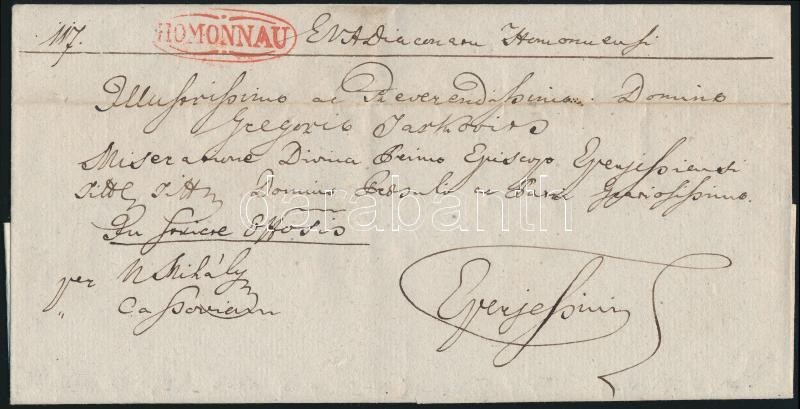 117. HOMONNAU E VADiaconatu Homonnensi
Illustrissimo ac Reverendissimo Domino
Gregorio Tarkovits
Miseratione Divina Primo Episcopo Eperjessiensi
Domino Praesuli ac Patri Gratiosissimo.
Ex officio Offosis
per N Mihály
" Cassoviam
Eperjessini
darabanth